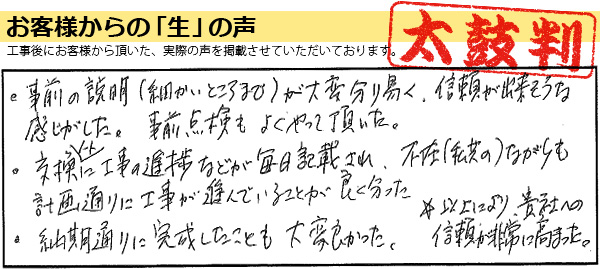 お客様からの「生」の声
工事後にお客様から頂いた、実際の声を掲載させていただいております。
太鼓判
• 事前の説明(細かいところまで)が大変分り易く、信頼が出来そうな
感じがした。事前点検もよくやって頂いた。
• 交換ノートに工事の進捗などが毎日記載され、不在(私共の)ながらも
計画通りに工事が進んでいることが良く分った
• 納期通りに完成したことも大変良かった。
※以上により、貴社への
信頼が非常に高まった。